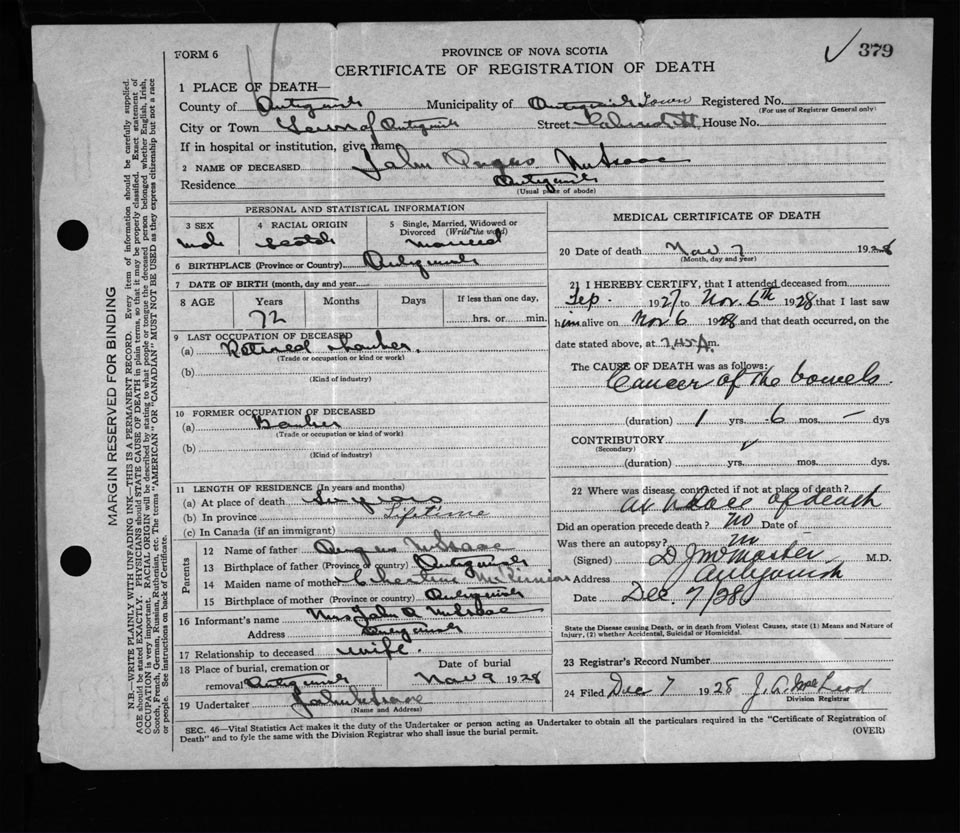 379
FORM 6
PROVINCE OF NOVA SCOTIA
CERTIFICATE OF REGISTRATION OF DEATH
1 PLACE OF DEATH—
County of Antigonish Municipality of Antigonish Town Registered No.
(For use of Registrar General only)
City or Town Town of Antigonish Street House No.
If in hospital or institution, give name
2 NAME OF DECEASED John Angus McIsaac
Residence Antigonish
(Usual place of abode)
PERSONAL AND STATISTICAL INFORMATION
3 SEX
Male
4 RACIAL ORIGIN
Scotch
5 Single, Married, Widowed or Divorced (Write the word)
Married
6 BIRTHPLACE (Province or Country) Antigonish
7 DATE OF BIRTH (month, day and year)
8 AGE Years Months Days If less than one day,
72 hrs. or min.
9 LAST OCCUPATION OF DECEASED
(a) Retired Banker.
(Trade or occupation or kind or work)
(b)
(Kind of industry)
10 FORMER OCCUPATION OF DECEASED
(a) Banker
(Trade or occupation or kind of work)
(b)
(Kind of industry)
11 LENGTH OF RESIDENCE (In years and months)
(a) At place of death
(b) In province Lifetime
(c) In Canada (if an immigrant)
Parents
12 Name of father Angus McIsaac
13 Birthplace of father (Province or country) Antigonish
14 Maiden name of mother McKinnon
15 Birthplace of mother (Province or country) Antigonish
16 Informant's name Mrs John A McIsaac
Address Antigonish
17 Relationship to deceased wife.
18 Place of burial, cremation or removal Antigonish
Date of burial
Nov 9 1928
19 Undertaker John McIsaac
(Name and Address)
MEDICAL CERTIFICATE OF DEATH
20 Date of death Nov 7 1928
(Month, day and year)
21 I HEREBY CERTIFY, that I attended deceased from
Sep. 1927 to Nov. 6th 1928 that I last saw
him alive on Nov 6 1928 and that death occurred, on the
date stated above, at 7.45 A m.
The CAUSE OF DEATH was as follows:
Cancer of the bowels.
(duration) 1 yrs. 6 mos. — dys
CONTRIBUTORY
(Secondary)
(duration) yrs. mos. dys.
22 Where was disease contracted if not at place of death?
At place of death
Did an operation precede death? No Date of
Was there an autopsy? No
(Signed) D J McMaster M.D.
Address Antigonish
Date Dec. 7/28
State the Disease causing Death, or in death from Violent Causes, state (1) Means and Nature of
Injury, (2) whether Accidental, Suicidal or Homicidal.
23 Registrar's Record Number
24 Filed Dec 7 1928 J. A.
Division Registrar
SEC. 46—Vital Statistics Act makes it the duty of the Undertaker or person acting as Undertaker to obtain all the particulars required in the "Certificate of Registration of
Death" and to fyle the same with the Division Registrar who shall issue the burial permit.
(OVER)
MARGIN RESERVED FOR BINDING
N.B.—WRITE PLAINLY WITH UNFADING INK—THIS IS A PERMANENT RECORD. Every item of information should be carefully supplied.
AGE should be stated EXACTLY. PHYSICIANS should STATE CAUSE OF DEATH in plain terms, so that it may be properly classified. Exact statement of
OCCUPATION is very important. RACIAL ORIGIN will be described by stating to what people or tongue the deceased person belonged whether English, Irish,
Scotch, French, German, Russian, Ruthenian, etc. The terms "AMERICAN" or "CANADIAN" MUST NOT BE USED as they express citizenship but not a race
or people. See instructions on back of Certificate.